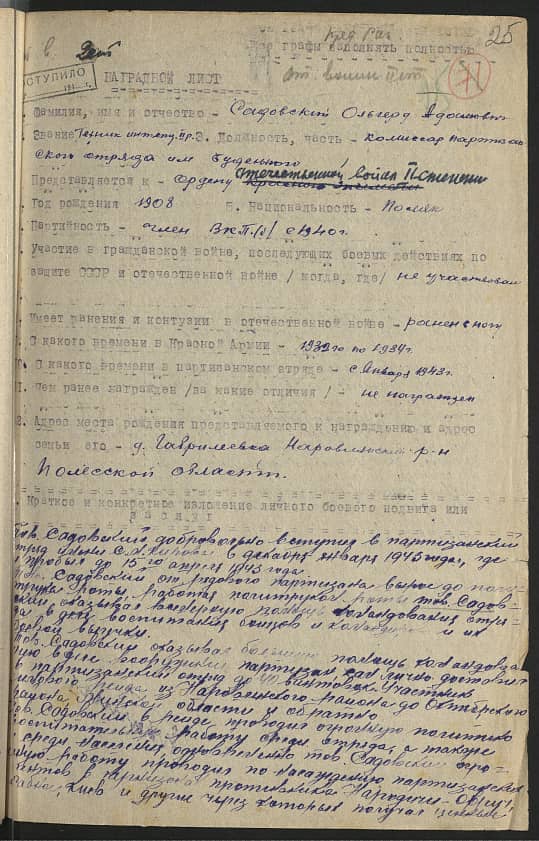 25
Все графы заполнять полностью
ПОСТУПИЛО
71
НАГРАДНОЙ ЛИСТ
Фамилия, имя и отчество - Садовский Ольгерд Адамович
Звание Техник интенд. IIр. 3. Должность, часть - комиссар партизан
ского отряда им Буденного
Отечественной войны II степени
Представляется к - Ордену
Год рождения 1908 5. Национальность - Поляк
Партийность - член ВКП/б/ с 1940 г.
Участие в гражданской войне, последующих боевых действиях по
защите СССР и отечественной войне /когда, где/ не участвовал
Имеет ранения и контузии в отечественной войне - ранен в ногу
С какого времени в Красной Армии - по 1934г.
С какого времени в партизанском отряде - с января 1943г.
Чем ранее награжден /за какие отличия/ - не награжден
Адрес места рождения представляемого к награждению и адрес
семьи его - д. Гаврилевка Наровлянский р-н
Полесской области.
Краткое и конкретное изложение личного боевого подвига или
заслуг
Тов. Садовский добровольно вступил в партизанский
отряд имени С.М. Кирова в января 1943 года, где
и пробыл до 15го апреля 1943 года.
Тов. Садовский от рядового партизана вырос до полит-
рука роты, работая политруком роты тов. Садов-
ский оказывал помощь командованию отря-
да в деле воспитания бойцов и и их
боевой выучки.
Тов. Садовский оказывал большую помощь командова-
нию в деле вооружения партизан, сам лично доставил
в партизанский отряд до 40 винтовок. Участник
рейда из Наровлянского района до Октябрьского
района области и обратно.
Тов. Садовский в рейде проводил огромную политико
воспитательную работу среди отряда, а также
среди населения, одновременно тов. Садовский огро-
мную работу проводил по насаждению партизанских
агентов в гарнизонах противника Народичи-Овруч,
Киев и другие через которых получал ценные